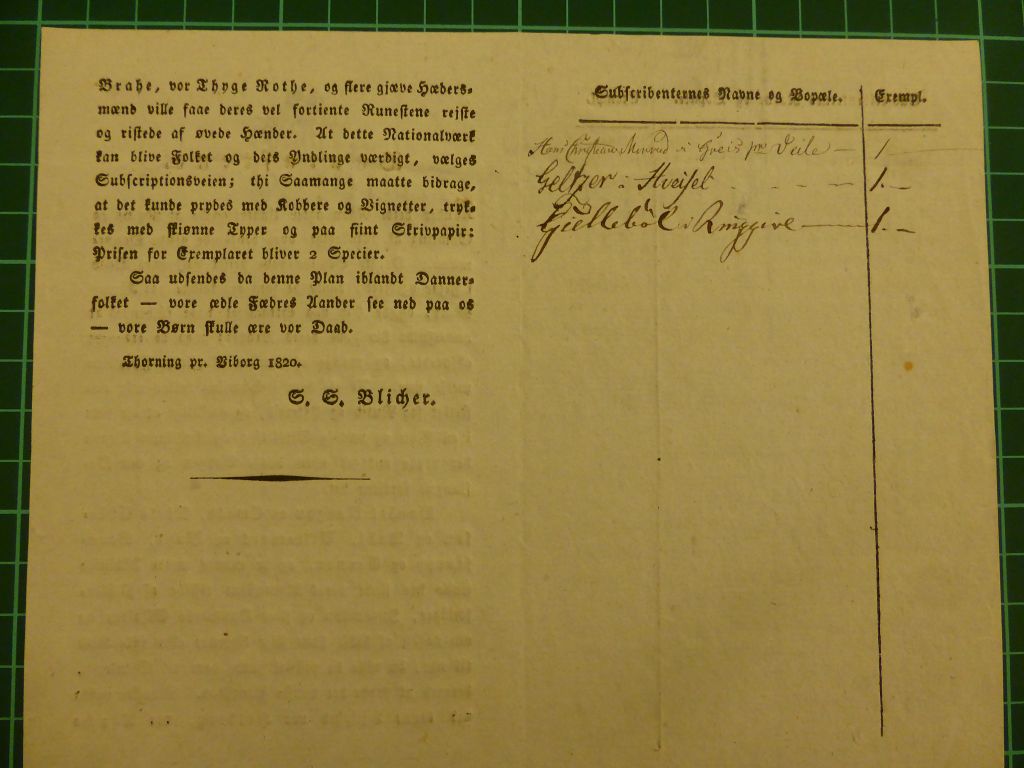 Brahe, vor Thyge Rothe, og flere gjæve Hæders-
mænd ville faae deres vel fortiente Runestene rejste
og ristede af øvede Hænder. At dette Nationalværk
kan blive Folket og dets Yndlinge værdigt, vælges
Subscriptionsveien; thi Saamange maatte bidrage,
at det kunde prydes med Kobbere og Vignetter, tryk-
kes med skiønne Typer og paa fiint Skrivpapir:
Prisen for Exemplaret bliver 2 Specier.
Saa udsendes da denne Plan iblandt Danner-
folket — vore ædle Fædres Aander see ned paa os
— vore Børn skulle ære vor Daad.
Thorning pr. Viborg 1820.
S. S. Blicher.
Subscribenternes Navne og Bopæle. Exempl.
Christian i pr Veile — 1
Geltzer i Hveisel - - - 1. —
Giellebøl i Ringgive — 1. —